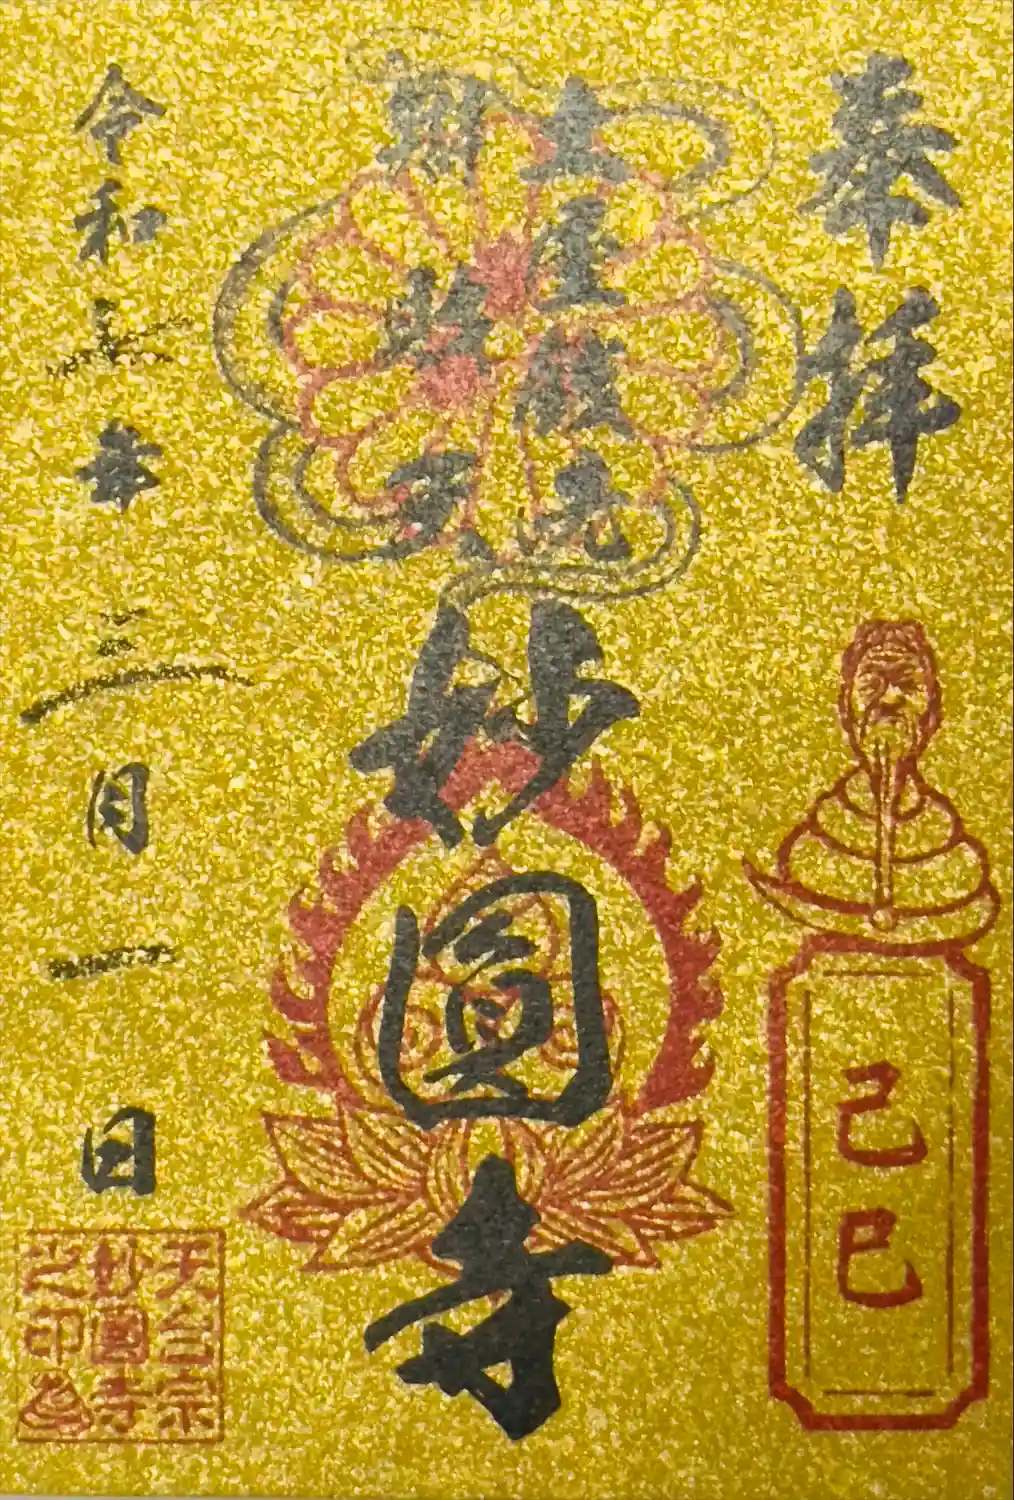 奉拝
己巳
土屋銭洗
辨財天
妙圓寺
令和七年三月一日
天台宗
妙圓寺
之印